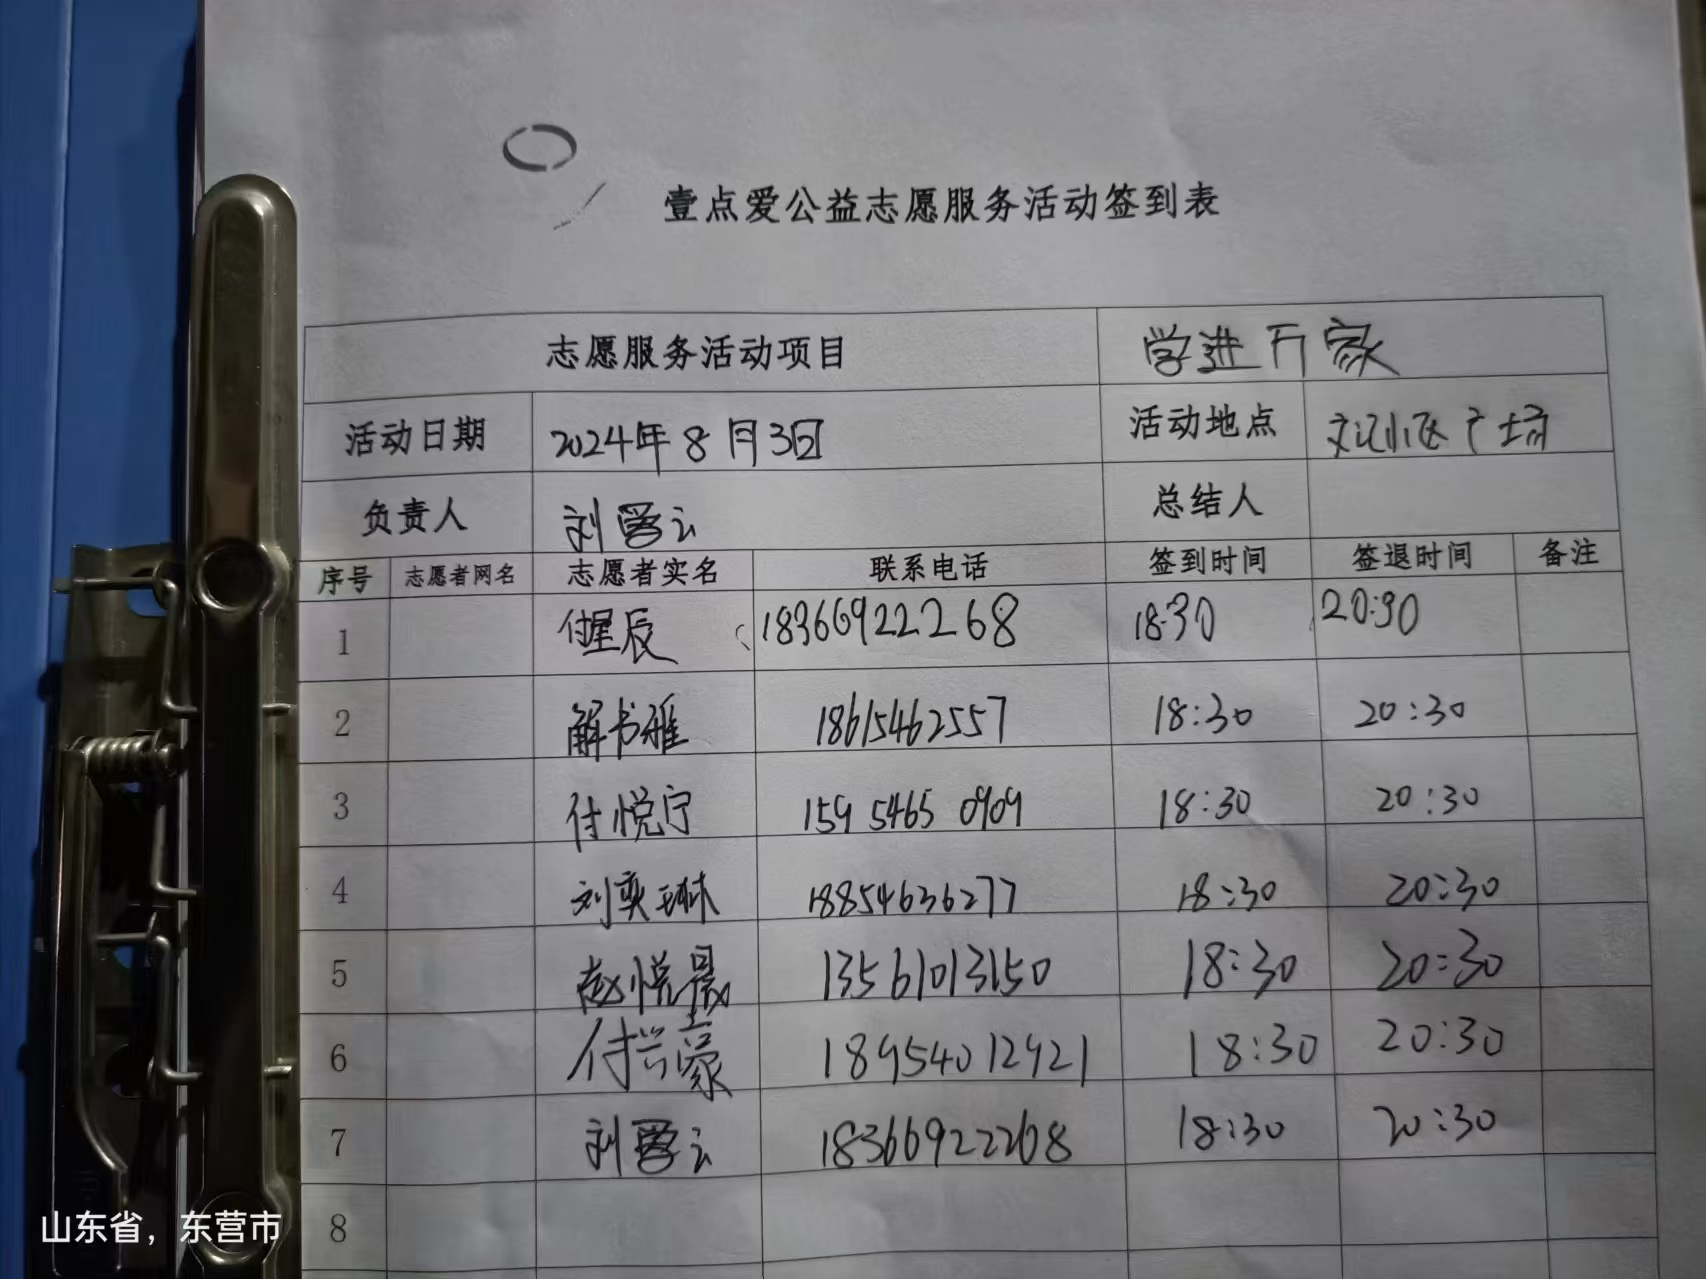 壹点爱公益志愿服务活动签到表
志愿服务活动项目 学进万家
活动日期 2024年8月3日 活动地点 文汇小区广场
负责人 刘云 总结人
序号 志愿者网名 志愿者实名 联系电话 签到时间 签退时间 备注
1 付星辰 18366922268 18:30 20:30
2 解书雅 18615462557 18:30 20:30
3 付悦宁 159 5465 0909 18:30 20:30
4 刘奕琳 18854636277 18:30 20:30
5 赵悦晨 13561013150 18:30 20:30
6 付兴豪 18954012921 18:30 20:30
7 刘云 18366922268 18:30 20:30
8
山东省，东营市